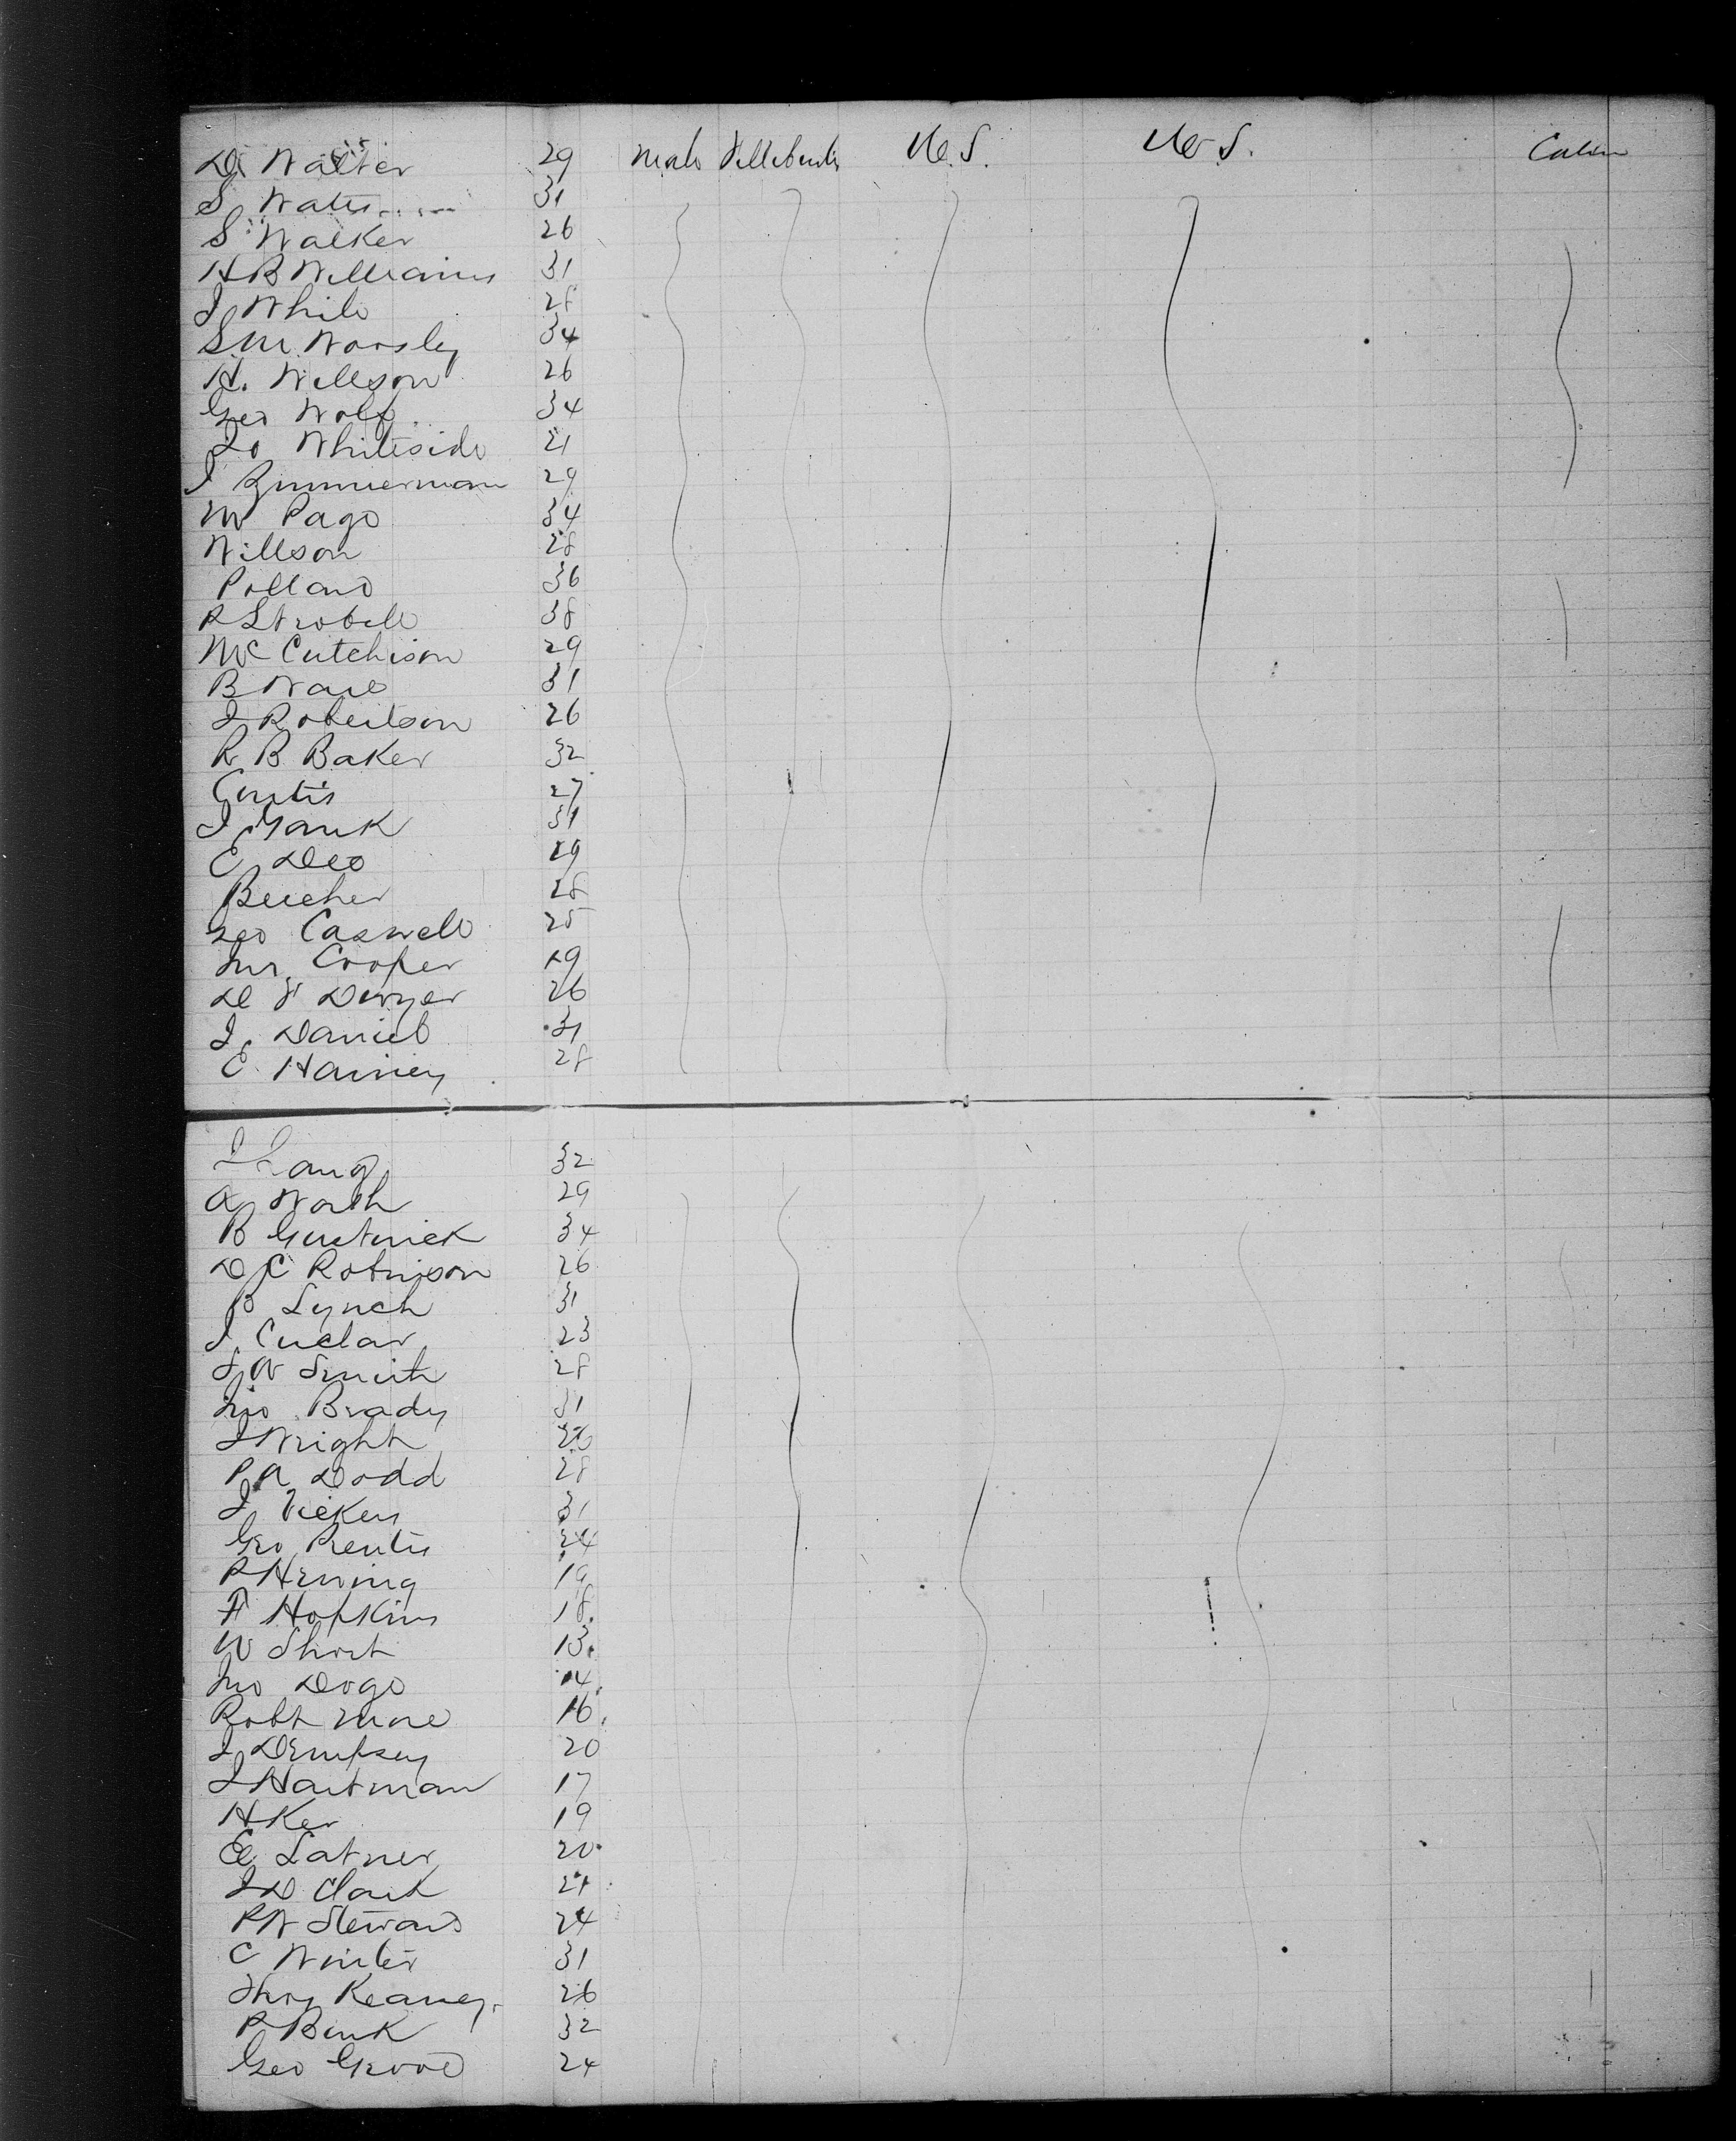 D Walter 29 Male U.S. U.S. Cabin
S Waters 31
S Walker 26
H B Williams 31
J White 28
S M Worsley 34
H. Willson 26
Geo Wolf 34
Whiteside 21
J Zimmerman 29
M Page 34
Willson 28
Pollard 36
R Strobell 38
McCutchison 29
B Ware 31
J Robertson 26
R B Baker 32
Curtis 27
J Yank 31
E Deo 29
Beecher 28
Geo Caswell 25
Jno Cooper 29
D F Dwyer 26
J. Daniel 31
E. Hainey 28
J Lang 32
A Worth 29
B 34
D C Robinson 26
P Lynch 31
J Cuellar 23
J W Smith 28
Jno Brady 31
J Wright
P A Dodd 28
J Vickers 31
Geo Prentis 24
P Herring 19
F Hopkins 18
W Short 13
Jno Doge 14
Robt More 16
J Dempsey 20
J Hartman 17
H Ker 19
E Latner 20
J D Clark 21
P W Steward 24
C Winter 31
Thos Keaney 26
P Bink 32
Geo Grove 24